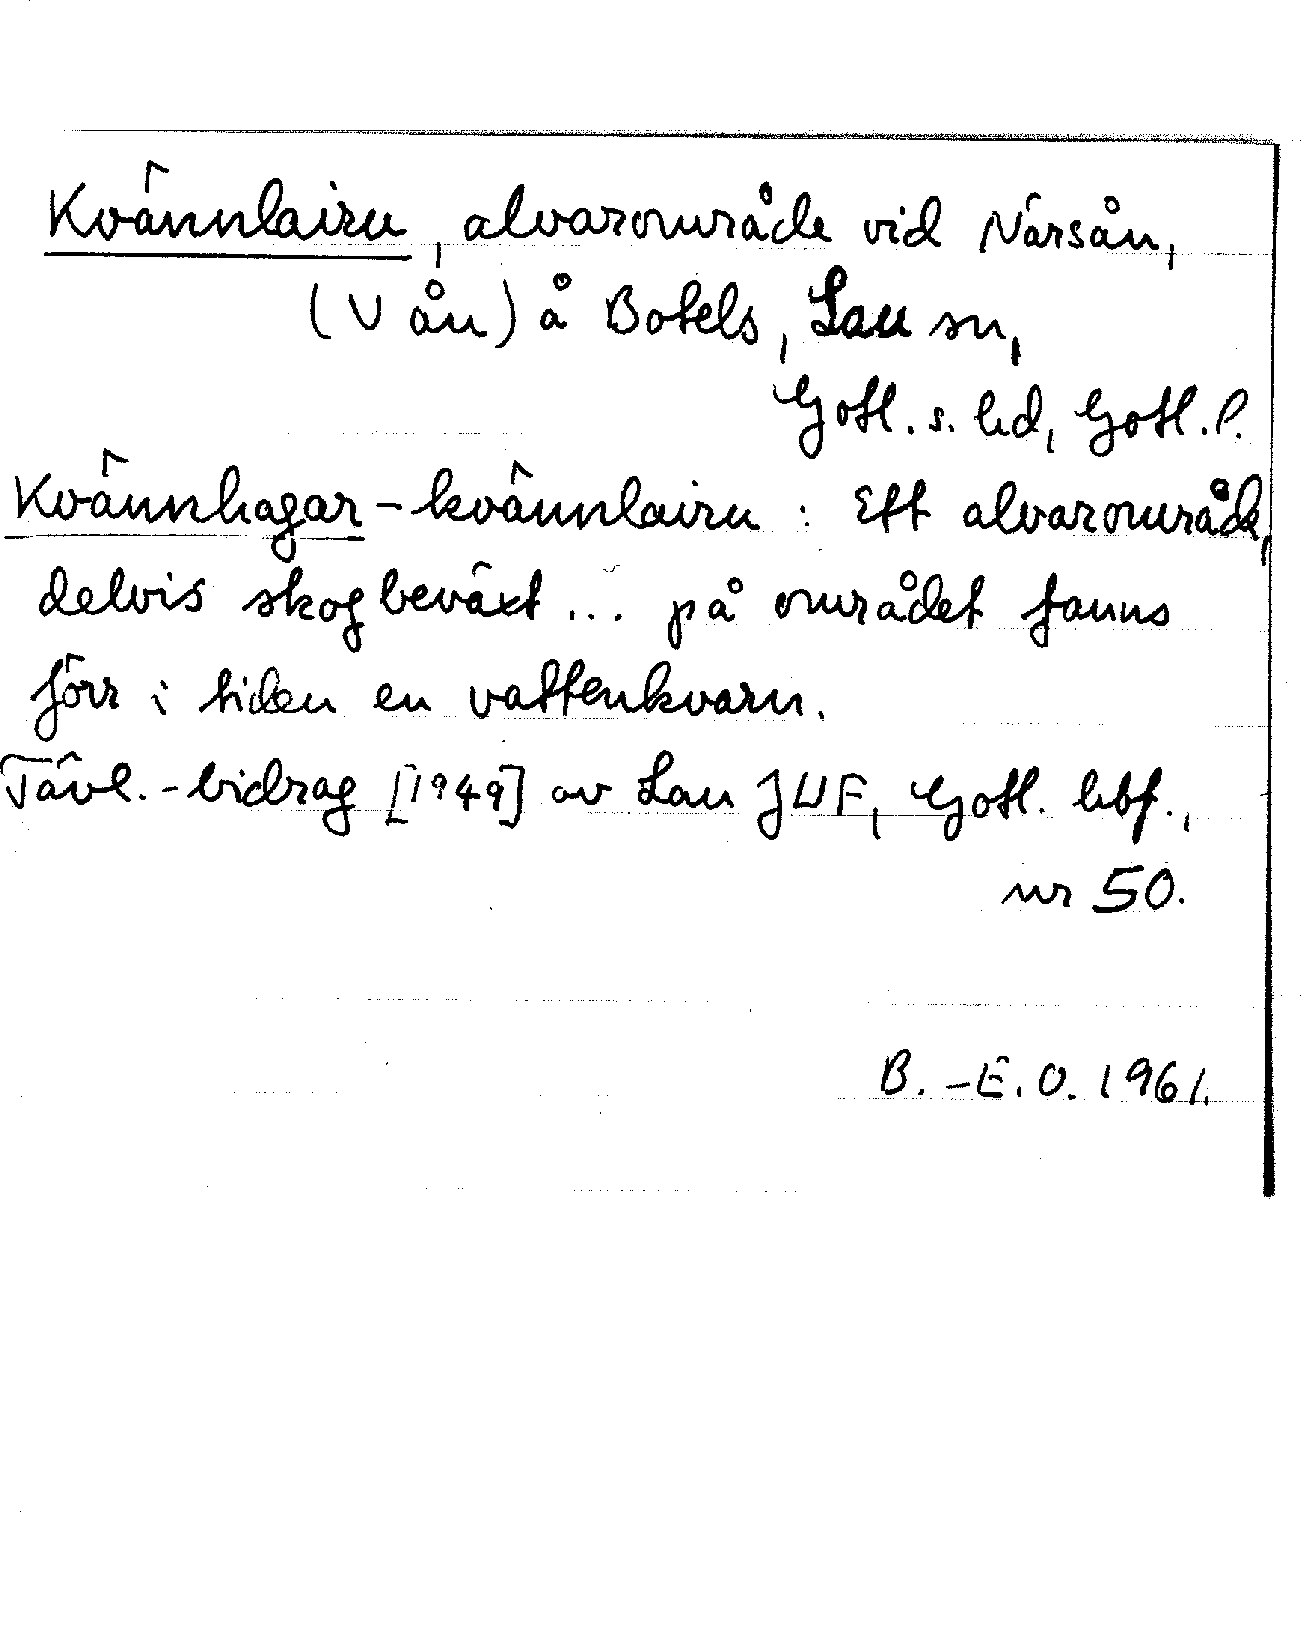 Kvännlairu, alvarområde vid Närsån,
(V ån) å Botels, Lau sn,
Gotl. s. hd, Gotl. l.
Kvännhagar - kvännlairu : Ett alvarområde,
delvis skogbeväxt ... på området fanns
förr i tiden en vattenkvarn.
Tävl. - bidrag [1949] av Lau JUF, Gotl. hbf.,
nr 50.
B. - E. O. 1961.